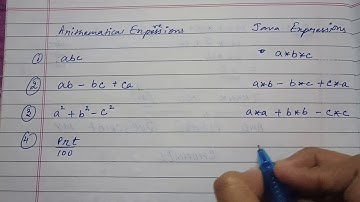 Arithematica Expressions Java Expressions
① abc * a*b*c
② ab - bc + ca a*b - b*c + c*a
③ a² + b² - c² a*a + b*b - c*c
④ Prt
100